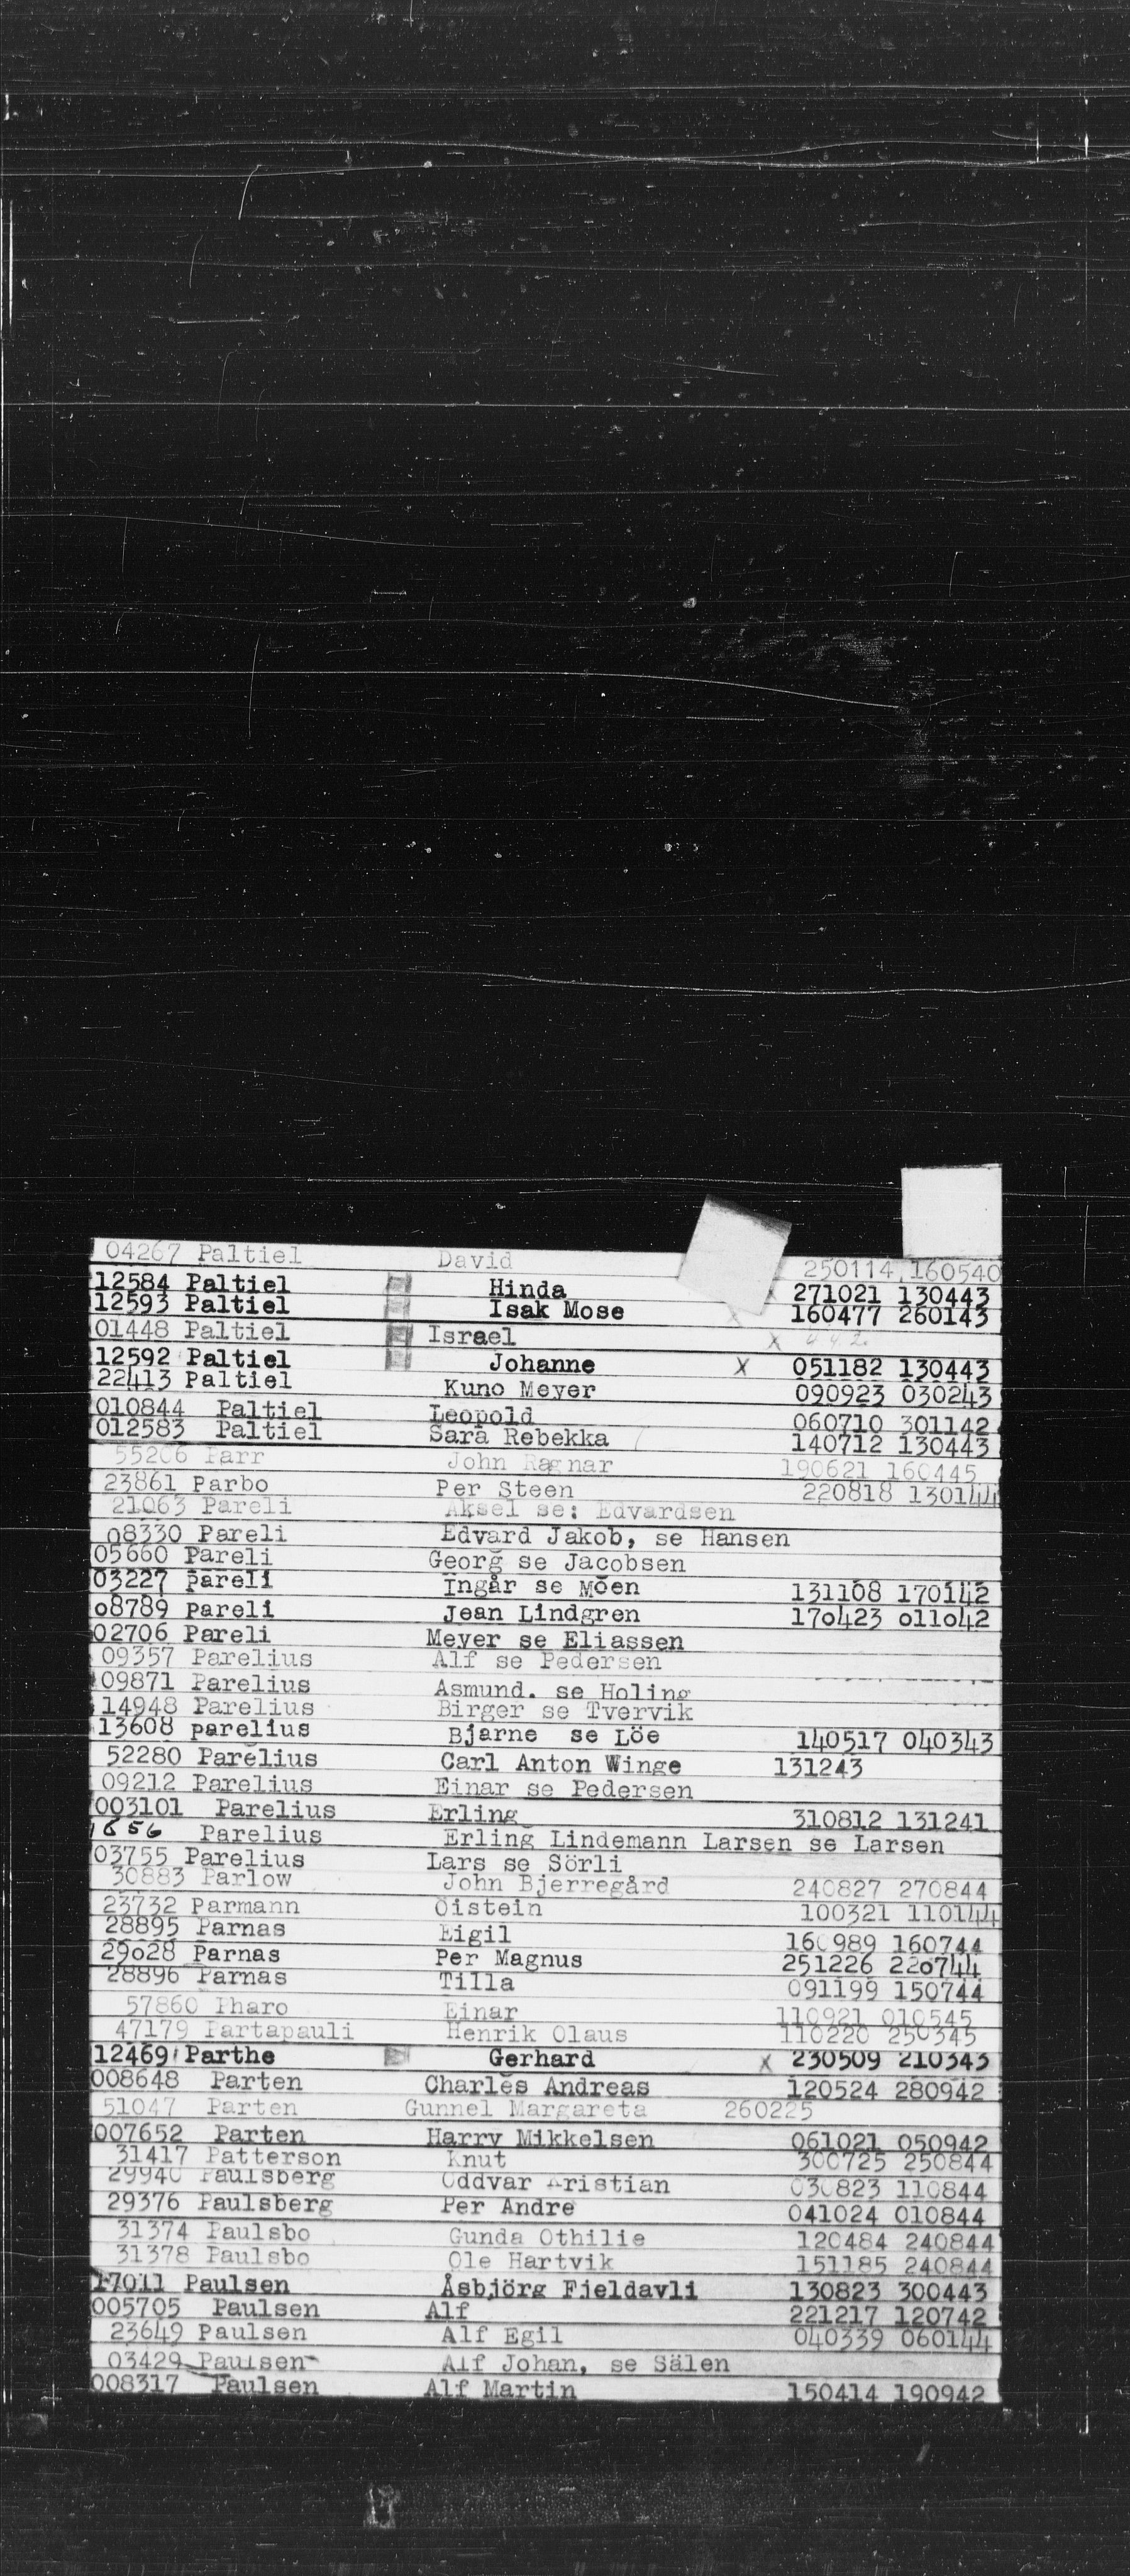 04267 Paltiel David 250114 160540
12584 Paltiel Hinda 271021 130443
12593 Paltiel Isak Mose 160477 260143
01448 Paltiel Israel X
12592 Paltiel Johanne X 051182 130443
22413 Paltiel Kuno Meyer 090923 030243
010844 Paltiel Leopold 060710 301142
012583 Paltiel Sara Rebekka 140712 130443
55206 Parr John Ragnar 190621 160445
23861 Parbo Per Steen 220818 130144
21063 Pareli Aksel se: Edvardsen
08330 Pareli Edvard Jakob, se Hansen
05660 Pareli Georg se Jacobsen
03227 pareli Ingår se Moen 131108 170142
o8789 pareli Jean Lindgren 170423 011042
02706 Pareli Meyer se Eliassen
09357 Parelius Alf se Pedersen
09871 Parelius Asmund. se Holing
14948 Parelius Birger se Tvervik
13608 parelius Bjarne se Löe 140517 040343
52280 Parelius Carl Anton Winge 131243
09212 Parelius Einar se Pedersen
003101 Parelius Erling 310812 131241
1656 Parelius Erling Lindemann Larsen se Larsen
03755 Parelius Lars se Sörli
30883 Parlow John Bjerregård 240827 270844
23732 Parmann Öistein 100321 110144
28895 Parnas Eigil 160989 160744
29o28 Parnas Per Magnus 251226 220744
28896 Parnas Tilla 091199 150744
57860 Pharo Einar 110921 010545
47179 Partapauli Henrik Olaus 110220 250345
12469 Parthe Gerhard X 230509 210343
008648 Parten Charles Andreas 120524 280942
51047 Parten Gunnel Margareta 260225
007652 Parten Harry Mikkelsen 061021 050942
31417 Patterson Knut 300725 250844
29940 Paulsberg Oddvar Kristian 030823 110844
29376 Paulsberg Per Andre 041024 010844
31374 Paulsbo Gunda Othilie 120484 240844
31378 Paulsbo Ole Hartvik 151185 240844
17011 Paulsen Åsbjörg Fjeldavli 130823 300443
005705 Paulsen Alf 221217 120742
23649 Paulsen Alf Egil 040339 060144
03429 Paulsen Alf Johan, se Sälen
008317 Paulsen Alf Martin 150414 190942